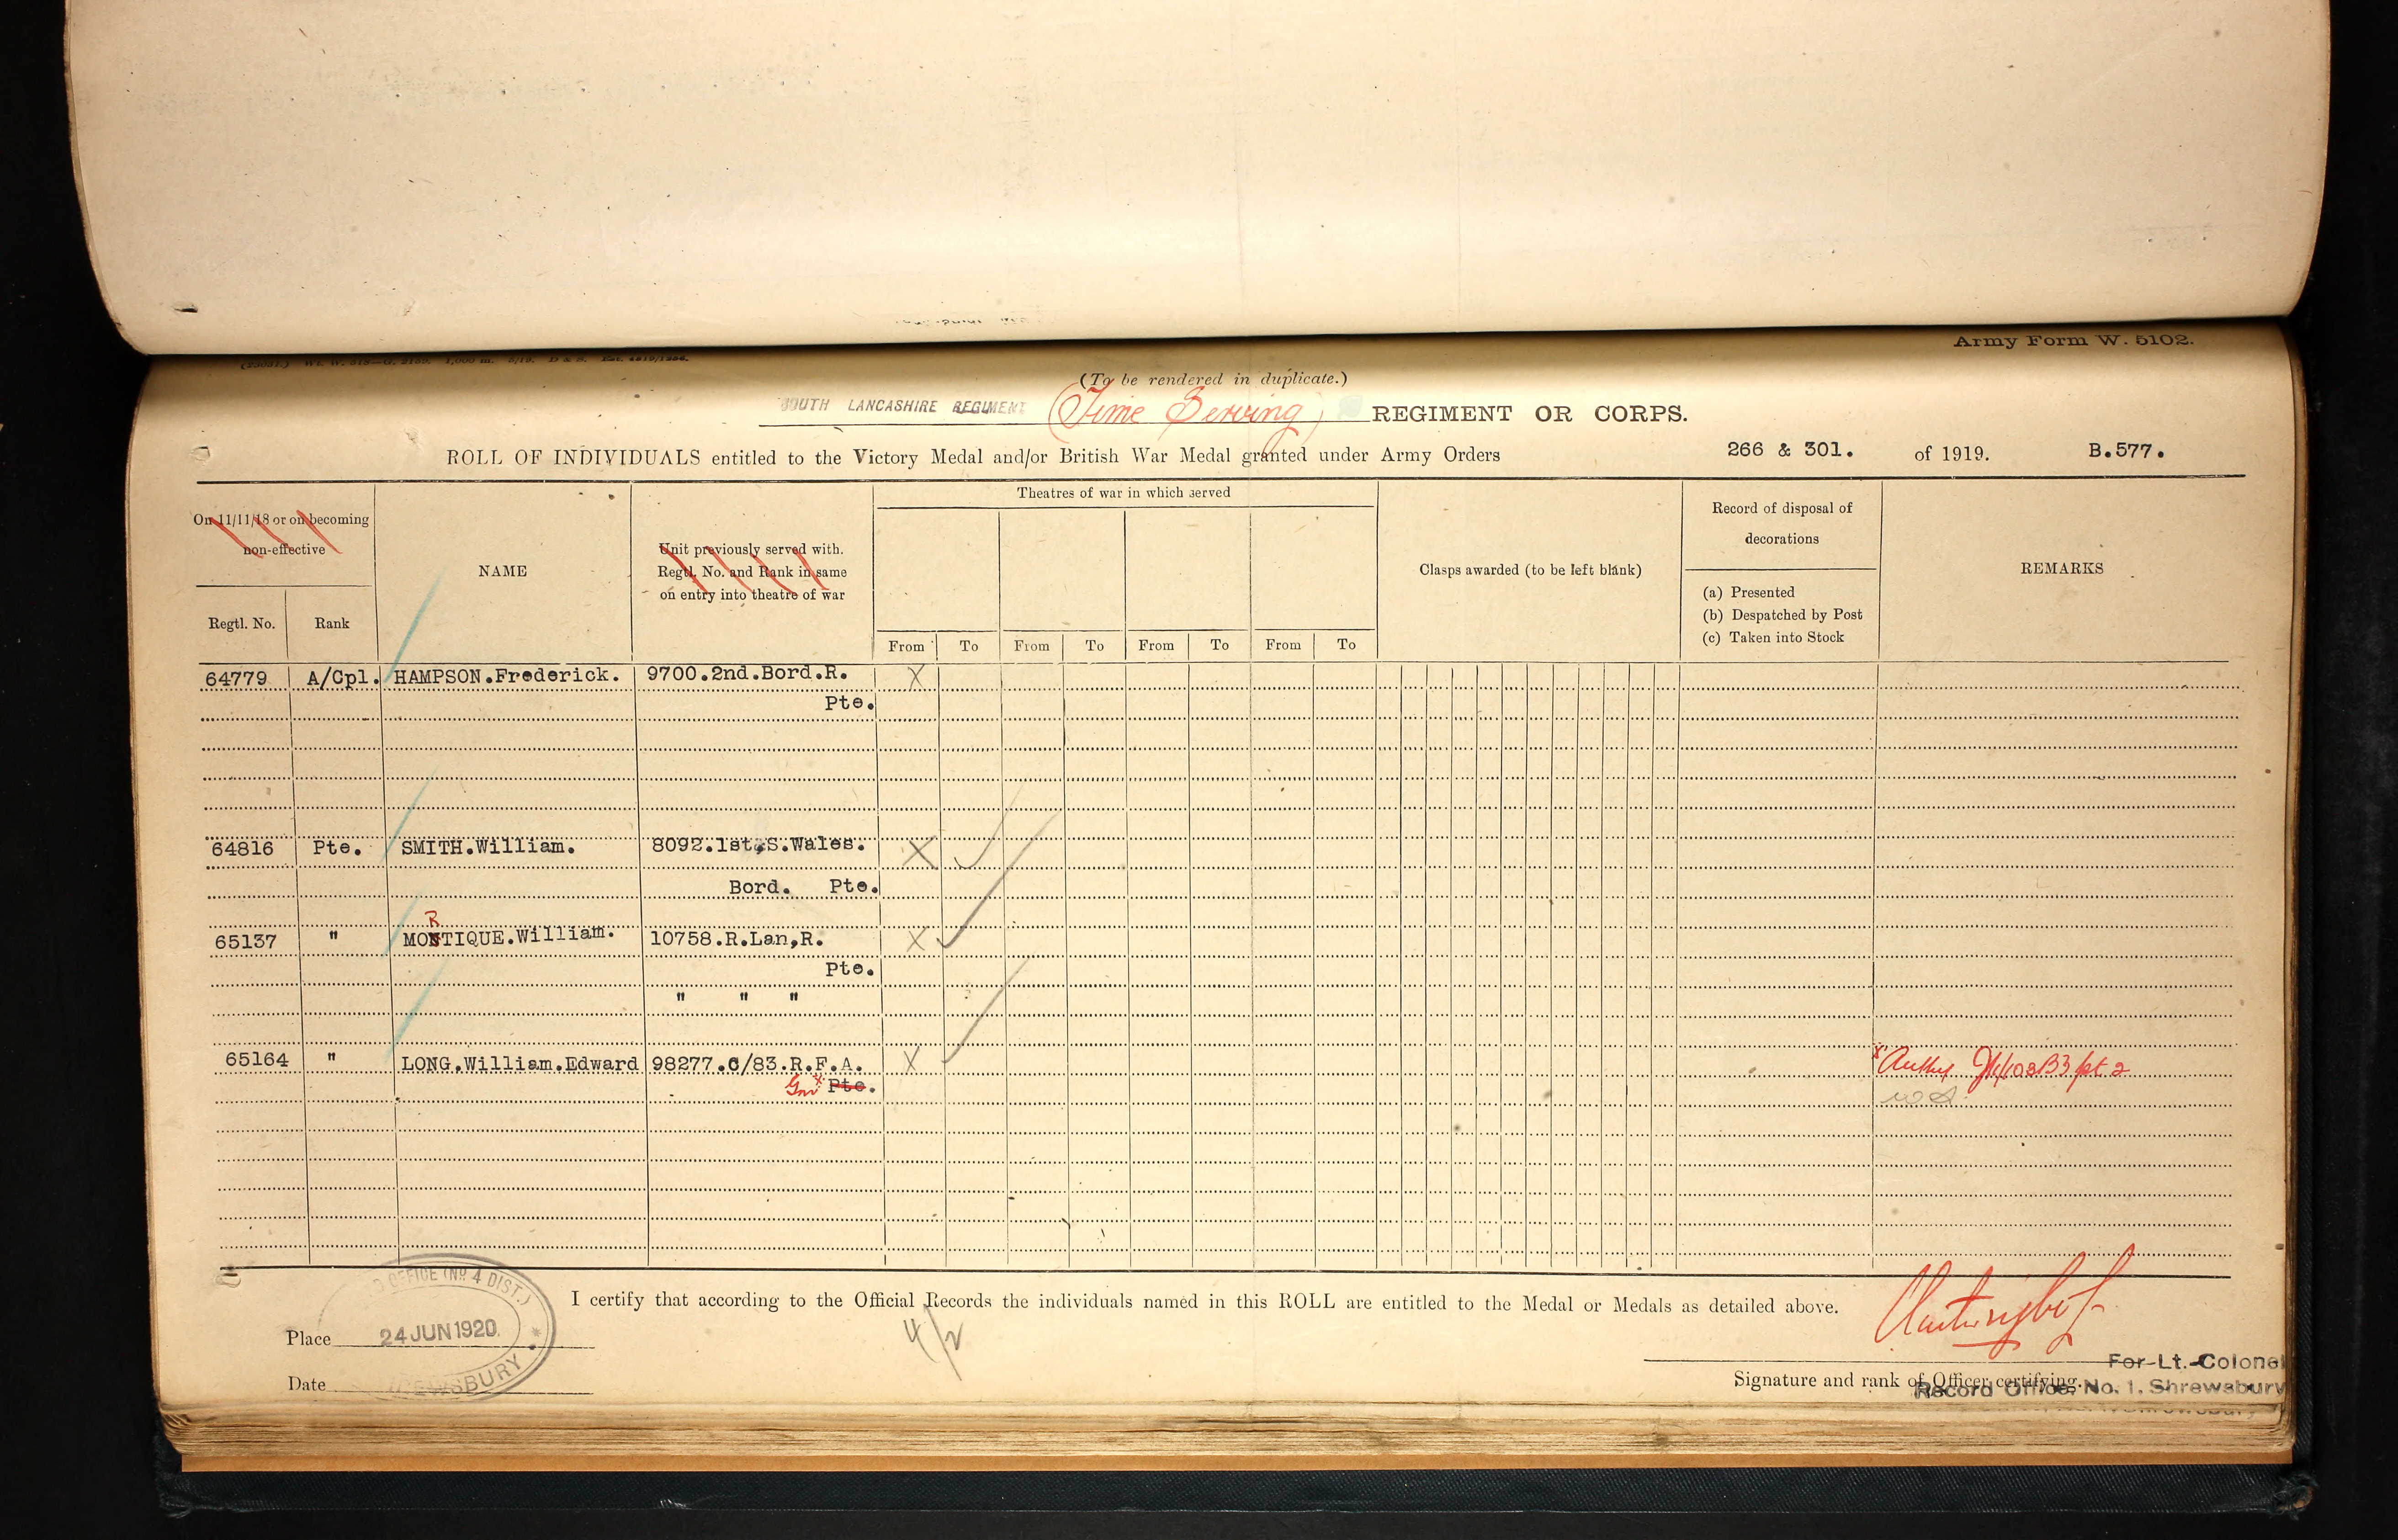 Army Form W. 5102.
(To be rendered in duplicate.)
SOUTH LANCASHIRE REGIMENT (Time Serving) REGIMENT OR CORPS.
ROLL OF INDIVIDUALS entitled to the Victory Medal and/or British War Medal granted under Army Orders 266 & 301. of 1919. B.577.
Theatres of war in which served
On 11/11/18 or on becoming
non-effective
Regtl. No. Rank
NAME
Unit previously served with.
Regtl. No. and Rank in same
on entry into theatre of war
From To From To From To From To
Clasps awarded (to be left blank)
Record of disposal of
decorations
(a) Presented
(b) Despatched by Post
(c) Taken into Stock
REMARKS
64779 A/Cpl. HAMPSON.Frederick. 9700.2nd.Bord.R. X
Pte.
64816 Pte. SMITH.William. 8092.1st.S.Wales. X
Bord. Pte.
R
65137 " MONTIQUE.William. 10758.R.Lan,R. X
Pte.
" " "
65164 " LONG.William.Edward 98277.C/83.R.F.A. X
Gnr x Pte.
I certify that according to the Official Records the individuals named in this ROLL are entitled to the Medal or Medals as detailed above.
OFFICE (No. 4 DIST.)
Place 24 JUN 1920
SHREWSBURY
Date
4/2
For Lt.-Colonel
Signature and rank of Officer certifying.
Record Office, No. 1. Shrewsbury